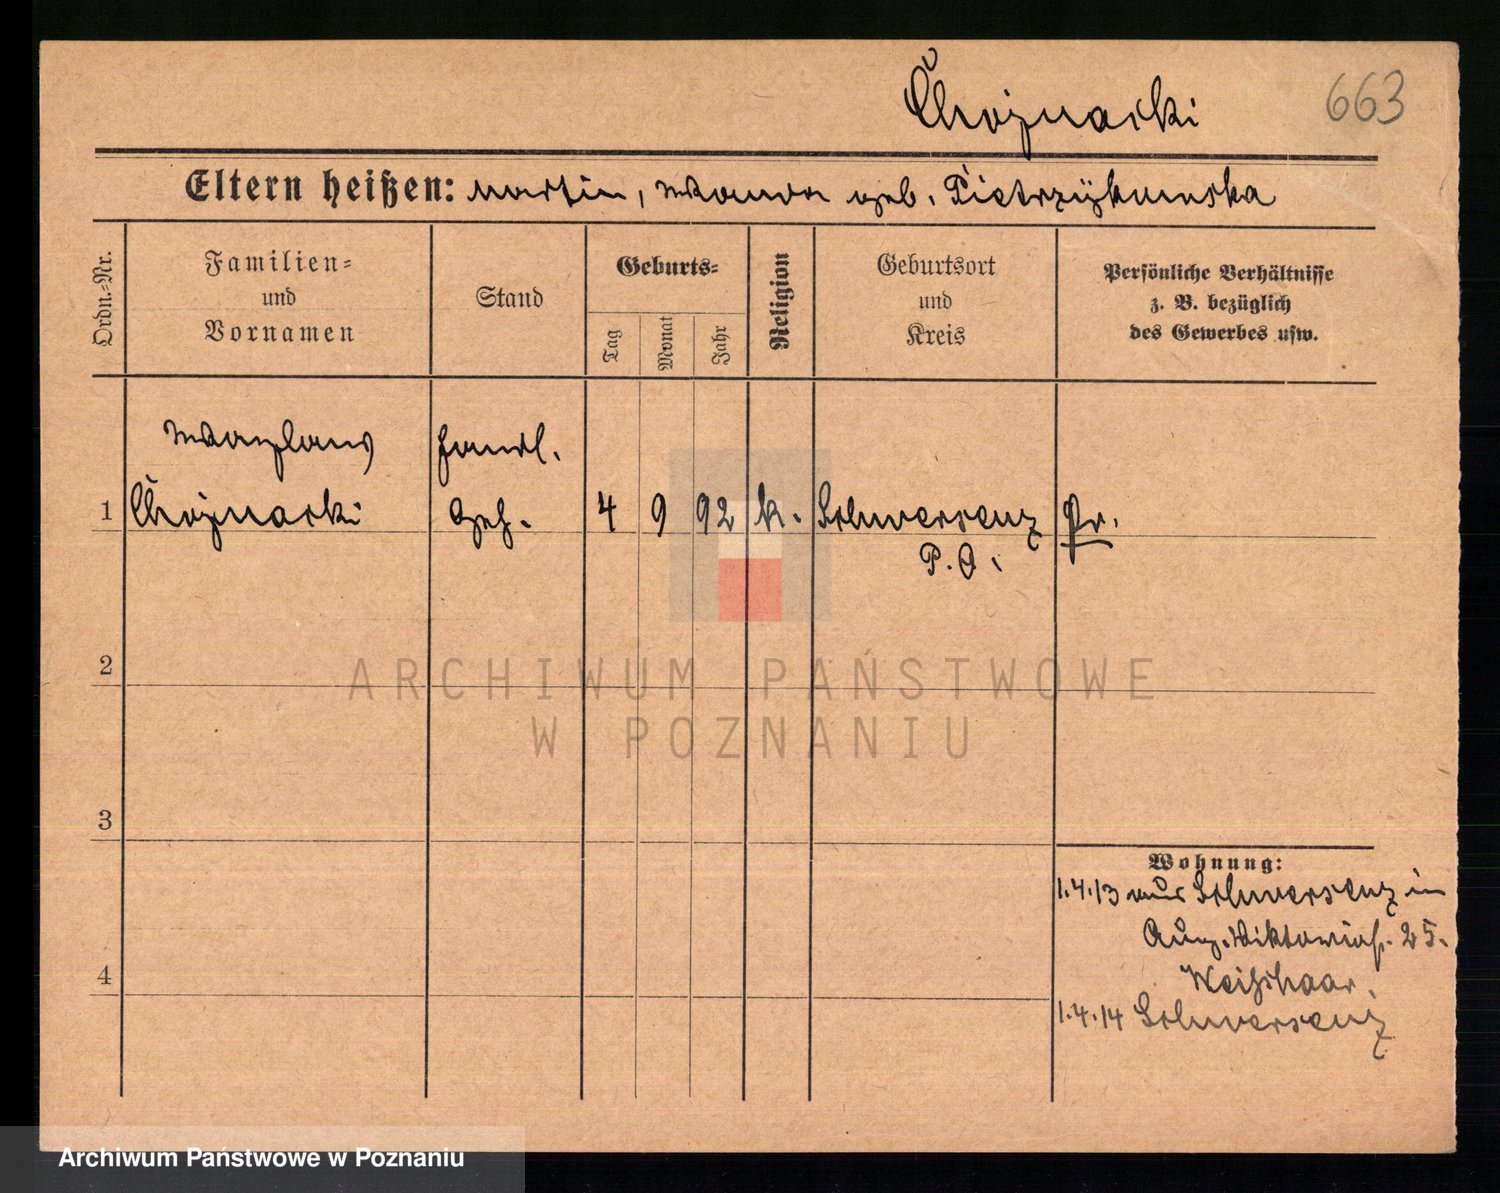 Chojnacki
663
Eltern heißen: Martin, Wanda geb. Pietrzykowska
Ordn.-Nr.
Familien-
und
Vornamen
Stand
Geburts-
Tag
Monat
Jahr
Religion
Geburtsort
und
Kreis
Persönliche Verhältnisse
z. B. bezüglich
des Gewerbes usw.
Handl.
1 Chojnacki Geh. 4 9 92 k. Schwersenz Pr.
P. O.
2
ARCHIWUM PAŃSTWOWE
W POZNANIU
3
Wohnung:
1.4.13 aus Schwersenz in
Aug. Viktoriastr. 25.
4
Weißhaar.
1.4.14 Schwersenz
Archiwum Państwowe w Poznaniu